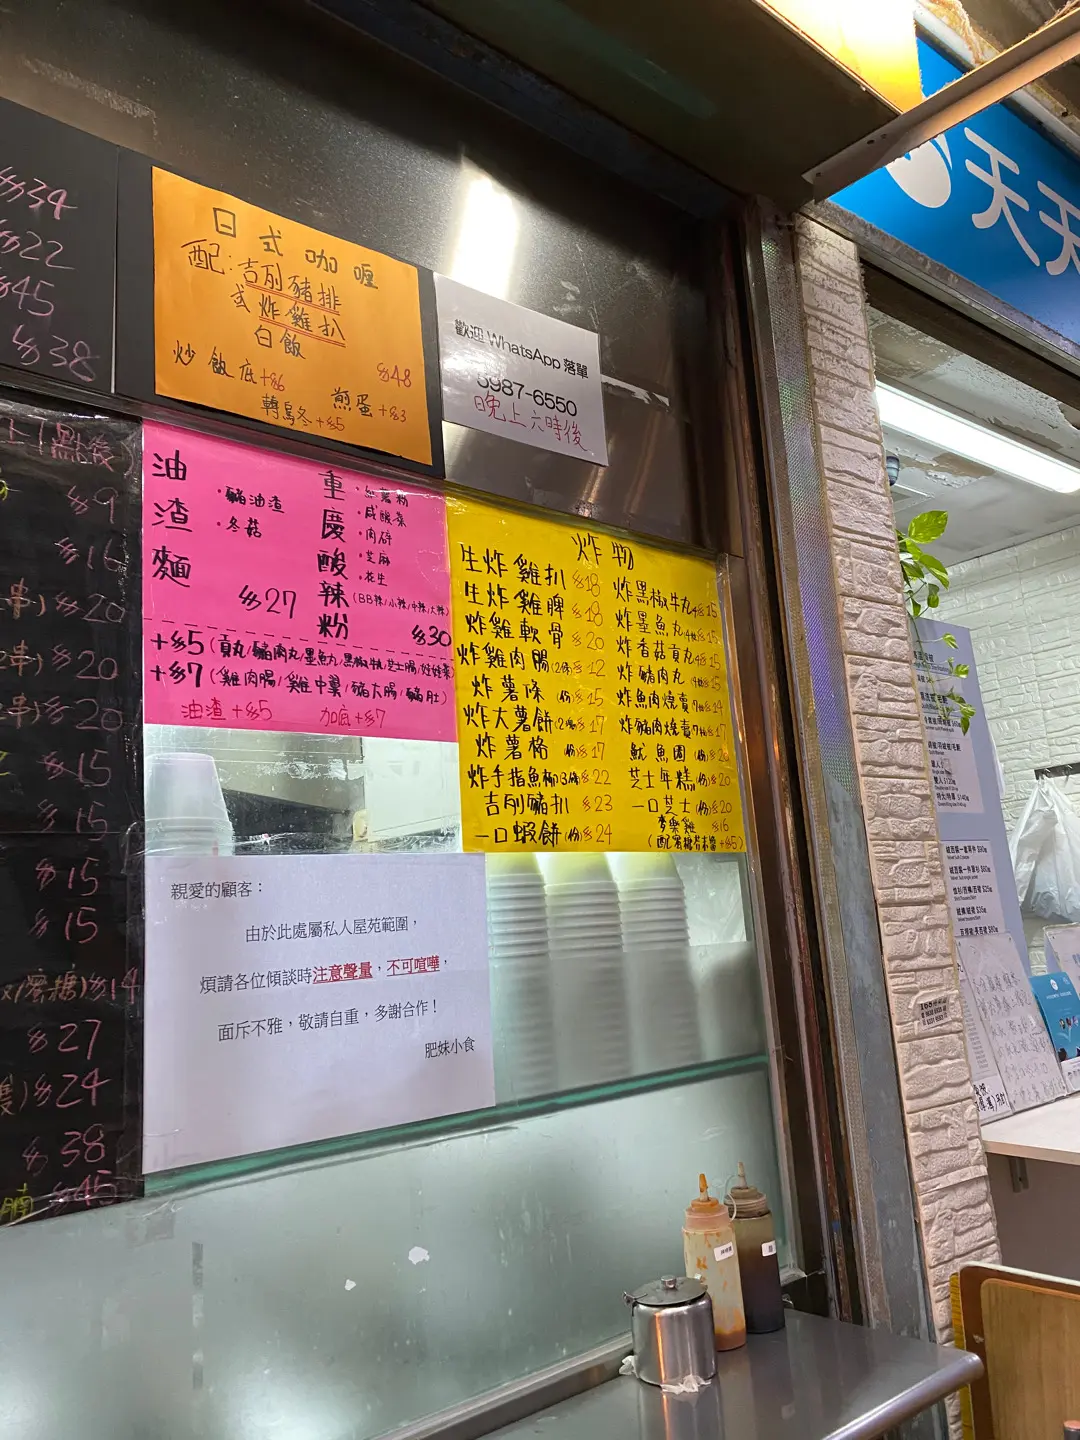 $34
$22
$45
$38
日式咖喱
配:吉列豬排
或炸雞扒
白飯
$48
炒飯底+$6
煎蛋+$3
轉烏冬+$5
歡迎 WhatsApp 落單
5987-6550
晚上六時後
天天
點後
$9
$16
串)$20
串)$20
串)$20
$15
$15
$15
$15
蜜糖)$14
$27
$24
$38
腩 $45
油渣麵
·豬油渣
·冬菇
$27
重慶酸辣粉
·紅薯粉
·咸酸菜
·肉碎
·芝麻
·花生
(BB辣/小辣/中辣/大辣)
$30
+$5(貢丸/豬肉丸/墨魚丸/黑椒牛丸/芝士腸/娃娃菜
+$7(雞肉腸/雞中翼/豬大腸/豬肚)
油渣+$5 加底+$7
炸物
生炸雞扒 $18
生炸雞脾 $18
炸雞軟骨 $20
炸雞肉腸(2條)$12
炸薯條 (份)$15
炸大薯餅(2塊)$17
炸薯格 (份)$17
炸手指魚柳(3條)$22
吉列豬扒 $23
一口蝦餅(份)$24
炸黑椒牛丸4粒$15
炸墨魚丸4粒$15
炸香菇貢丸4粒$15
炸豬肉丸 4粒$15
炸魚肉燒賣7粒$14
炸豬肉燒賣7粒$17
魷魚圈 (份)$20
芝士年糕(份)$20
一口芝士(份)$20
麥樂雞 $16
(配蜜糖芥末醬+$5)
親愛的顧客:
由於此處屬私人屋苑範圍,
煩請各位傾談時注意聲量,不可喧嘩,
面斥不雅,敬請自重,多謝合作!
肥妹小食